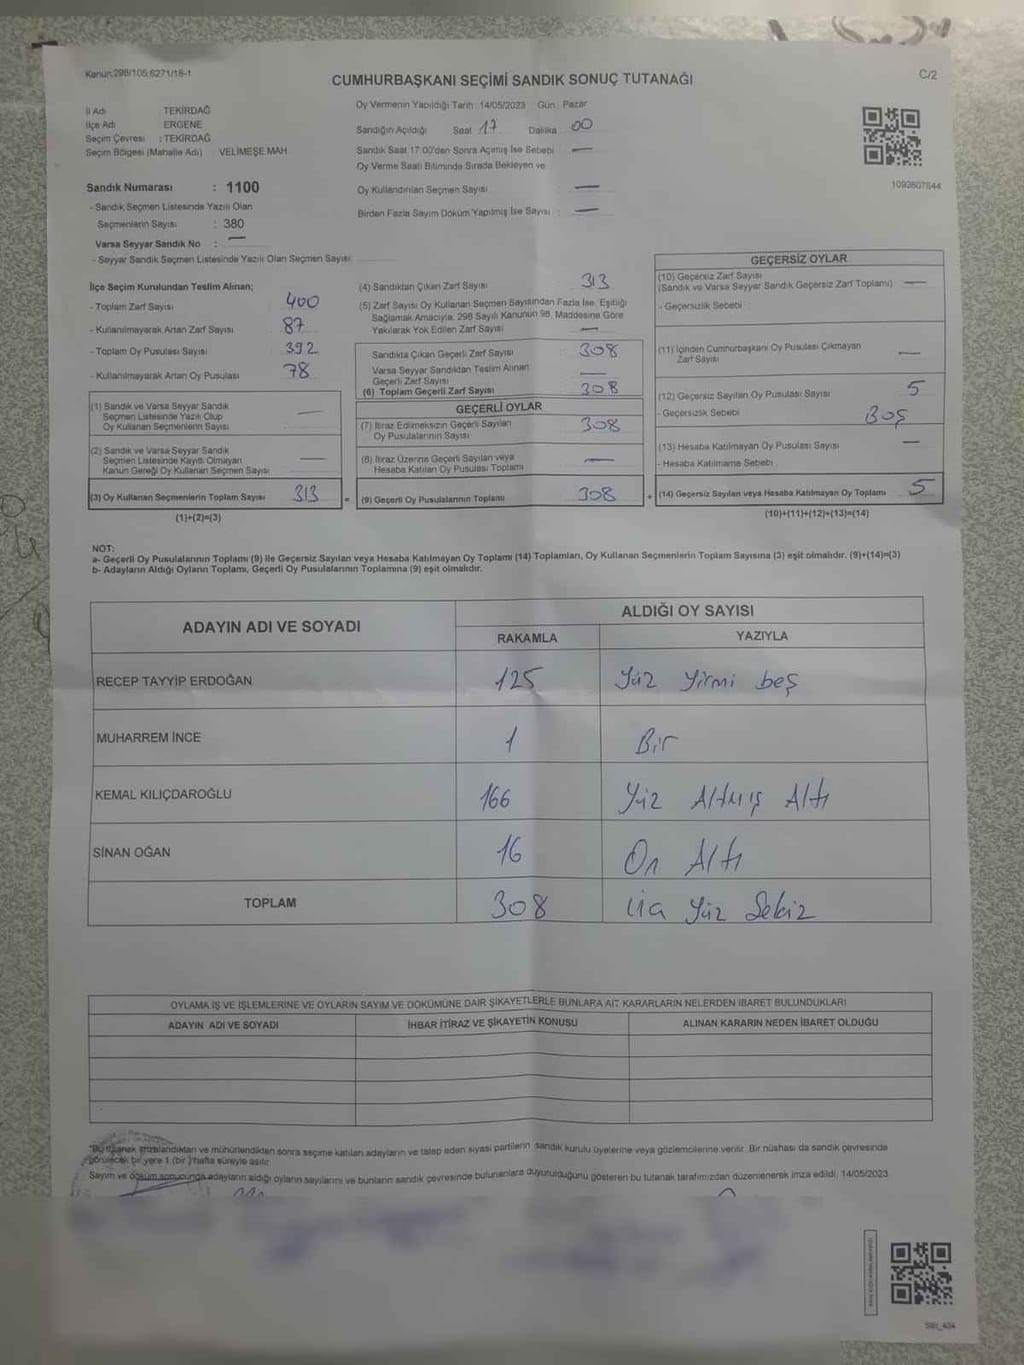 Kanun:298/105,6271/18-1
C/2
CUMHURBAŞKANI SEÇİMİ SANDIK SONUÇ TUTANAĞI
İl Adı TEKİRDAĞ
İlçe Adı ERGENE
Seçim Çevresi : TEKİRDAĞ
Seçim Bölgesi (Mahalle Adı) VELİMEŞE MAH.
Oy Vermenin Yapıldığı Tarih: 14/05/2023 Gün: Pazar
Sandığın Açıldığı Saat 17 Dakika 00
Sandık Saat 17:00'den Sonra Açımış İse Sebebi —
Oy Verme Saati Bitiminde Sırada Bekleyen ve
Oy Kullandırılan Seçmen Sayısı —
Birden Fazla Sayım Döküm Yapılmış İse Sayısı : —
1093607844
Sandık Numarası : 1100
- Sandık Seçmen Listesinde Yazılı Olan
Seçmenlerin Sayısı : 380
Varsa Seyyar Sandık No : —
- Seyyar Sandık Seçmen Listesinde Yazılı Olan Seçmen Sayısı:
İlçe Seçim Kurulundan Teslim Alınan;
- Toplam Zarf Sayısı 400
- Kullanılmayarak Artan Zarf Sayısı 87
- Toplam Oy Pusulası Sayısı 392
- Kullanılmayarak Artan Oy Pusulası 78
(1) Sandık ve Varsa Seyyar Sandık
Seçmen Listesinde Yazılı Olup
Oy Kullanan Seçmenlerin Sayısı —
(2) Sandık ve Varsa Seyyar Sandık
Seçmen Listesinde Kayıtlı Olmayan
Kanun Gereği Oy Kullanan Seçmen Sayısı —
(3) Oy Kullanan Seçmenlerin Toplam Sayısı 313
(1)+(2)=(3)
(4) Sandıktan Çıkan Zarf Sayısı 313
(5) Zarf Sayısı Oy Kullanan Seçmen Sayısından Fazla İse, Eşitliği
Sağlamak Amacıyla, 298 Sayılı Kanunun 98. Maddesine Göre
Yakılarak Yok Edilen Zarf Sayısı —
Sandıkta Çıkan Geçerli Zarf Sayısı 308
Varsa Seyyar Sandıktan Teslim Alınan
Geçerli Zarf Sayısı —
(6) Toplam Geçerli Zarf Sayısı 308
GEÇERLİ OYLAR
(7) İtiraz Edilmeksizin Geçerli Sayılan
Oy Pusulalarının Sayısı 308
(8) İtiraz Üzerine Geçerli Sayılan veya
Hesaba Katılan Oy Pusulası Toplamı —
= (9) Geçerli Oy Pusulalarının Toplamı 308
GEÇERSİZ OYLAR
(10) Geçersiz Zarf Sayısı
(Sandık ve Varsa Seyyar Sandık Geçersiz Zarf Toplamı) —
- Geçersizlik Sebebi
(11) İçinden Cumhurbaşkanı Oy Pusulası Çıkmayan
Zarf Sayısı —
(12) Geçersiz Sayılan Oy Pusulası Sayısı 5
- Geçersizlik Sebebi Boş
(13) Hesaba Katılmayan Oy Pusulası Sayısı —
- Hesaba Katılmama Sebebi
+ (14) Geçersiz Sayılan veya Hesaba Katılmayan Oy Toplamı 5
(10)+(11)+(12)+(13)=(14)
NOT:
a- Geçerli Oy Pusulalarının Toplamı (9) ile Geçersiz Sayılan veya Hesaba Katılmayan Oy Toplamı (14) Toplamları, Oy Kullanan Seçmenlerin Toplam Sayısına (3) eşit olmalıdır. (9)+(14)=(3)
b- Adayların Aldığı Oyların Toplamı, Geçerli Oy Pusulalarının Toplamına (9) eşit olmalıdır.
ADAYIN ADI VE SOYADI
ALDIĞI OY SAYISI
RAKAMLA YAZIYLA
RECEP TAYYİP ERDOĞAN 125 Yüz Yirmi beş
MUHARREM İNCE 1 Bir
KEMAL KILIÇDAROĞLU 166 Yüz Altmış Altı
SİNAN OĞAN 16 On Altı
TOPLAM 308 Üç Yüz Sekiz
OYLAMA İŞ VE İŞLEMLERİNE VE OYLARIN SAYIM VE DÖKÜMÜNE DAİR ŞİKAYETLERLE BUNLARA AİT KARARLARIN NELERDEN İBARET BULUNDUKLARI
ADAYIN ADI VE SOYADI İHBAR İTİRAZ VE ŞİKAYETİN KONUSU ALINAN KARARIN NEDEN İBARET OLDUĞU
*Bu tutanak imzalandıktan ve mühürlendikten sonra seçime katılan adayların ve talep eden siyasi partilerin sandık kurulu üyelerine veya gözlemcilerine verilir. Bir nüshası da sandık çevresinde
görülecek bir yere 1 (bir) hafta süreyle asılır.
Sayım ve döküm sonucunda adayların aldığı oyların sayılarını ve bunların sandık çevresinde bulunanlara duyurulduğunu gösteren bu tutanak tarafımızdan düzenlenerek imza edildi. 14/05/2023